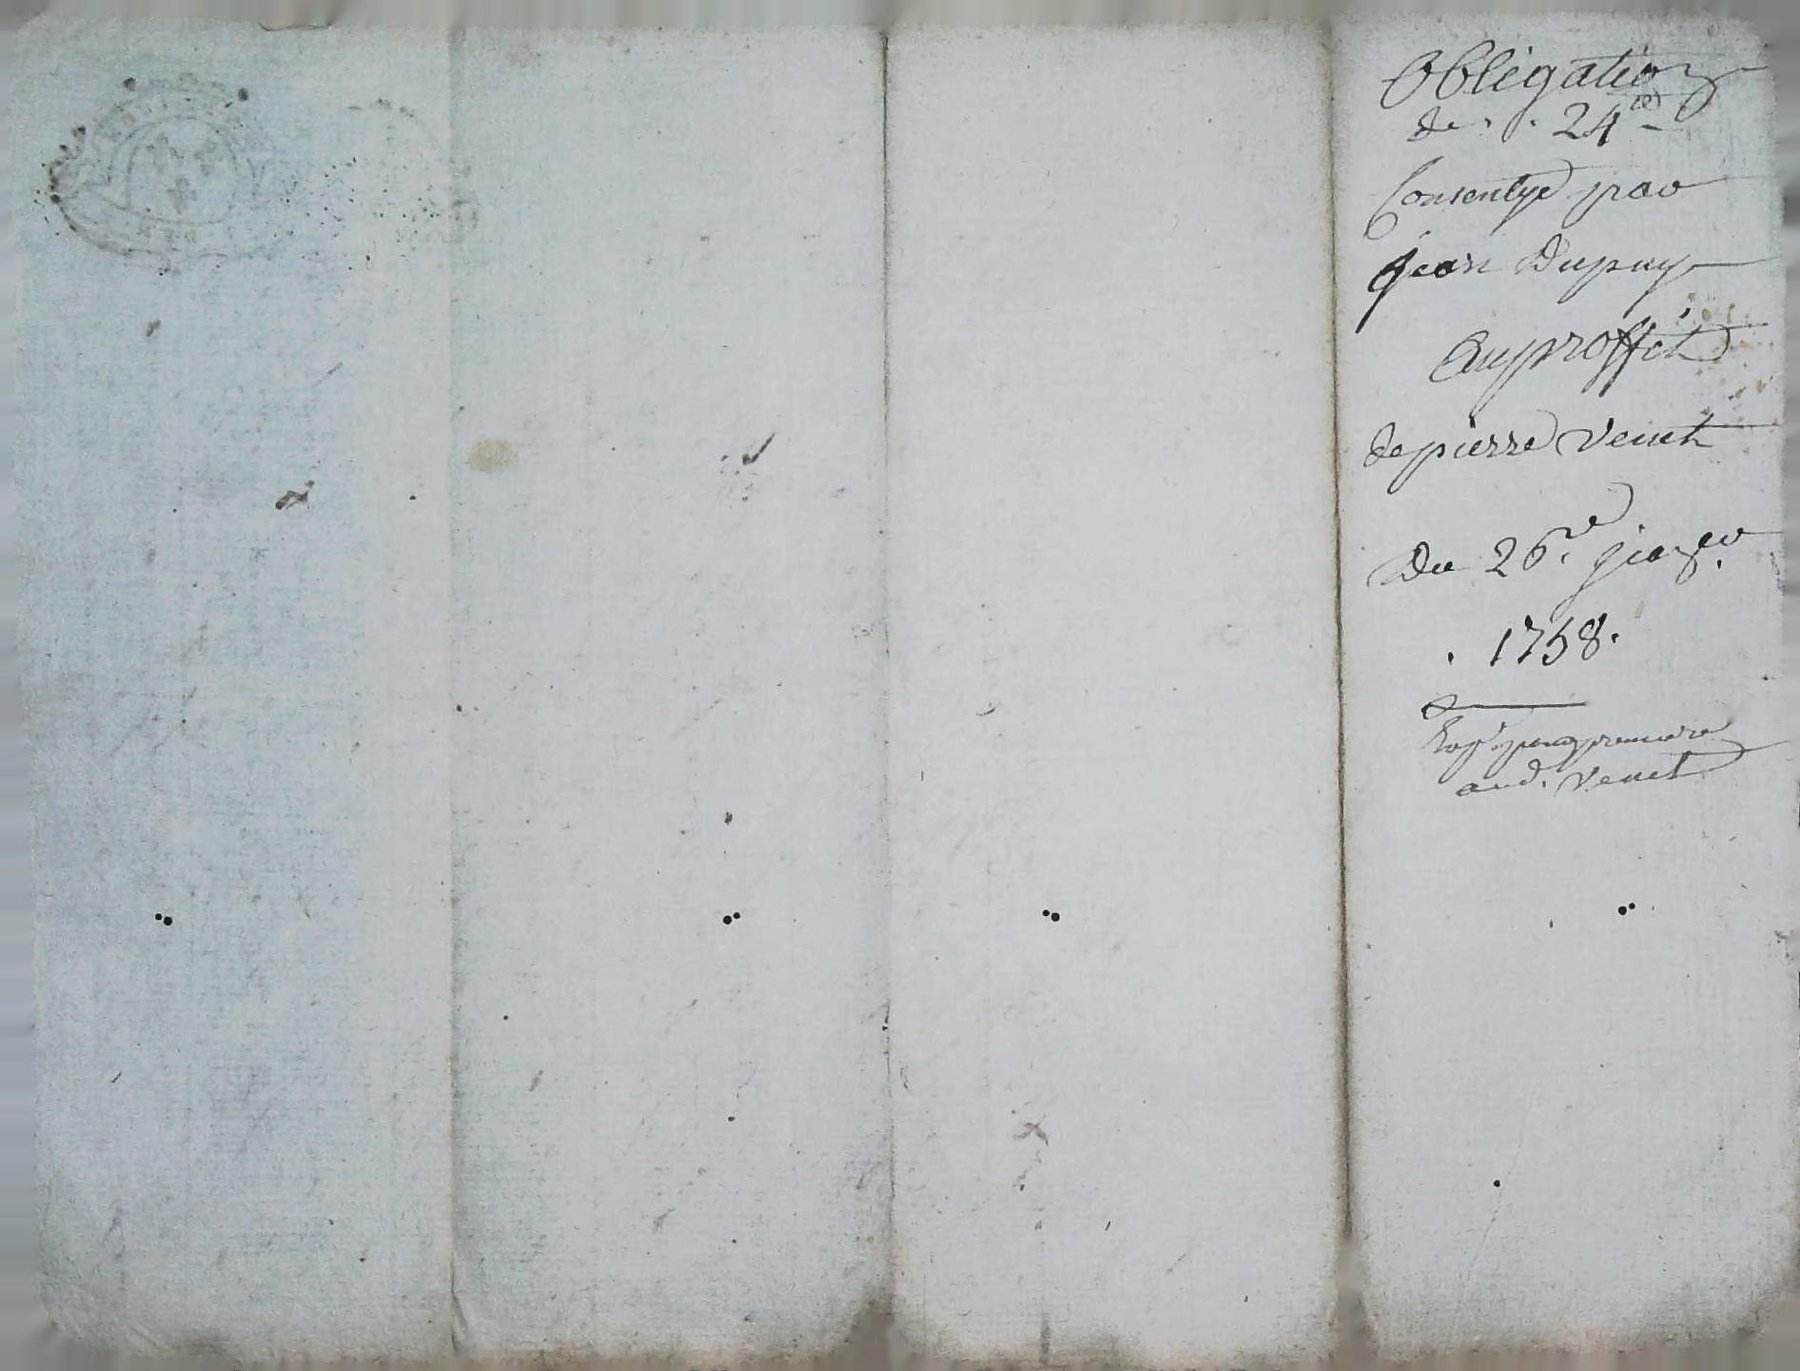 Obligation
de . . 24#
Consentye par
jean Dupuy
Au proffit
de pierre Venet
Du 26e janer.
. 1758.
premiere
aud. Venet